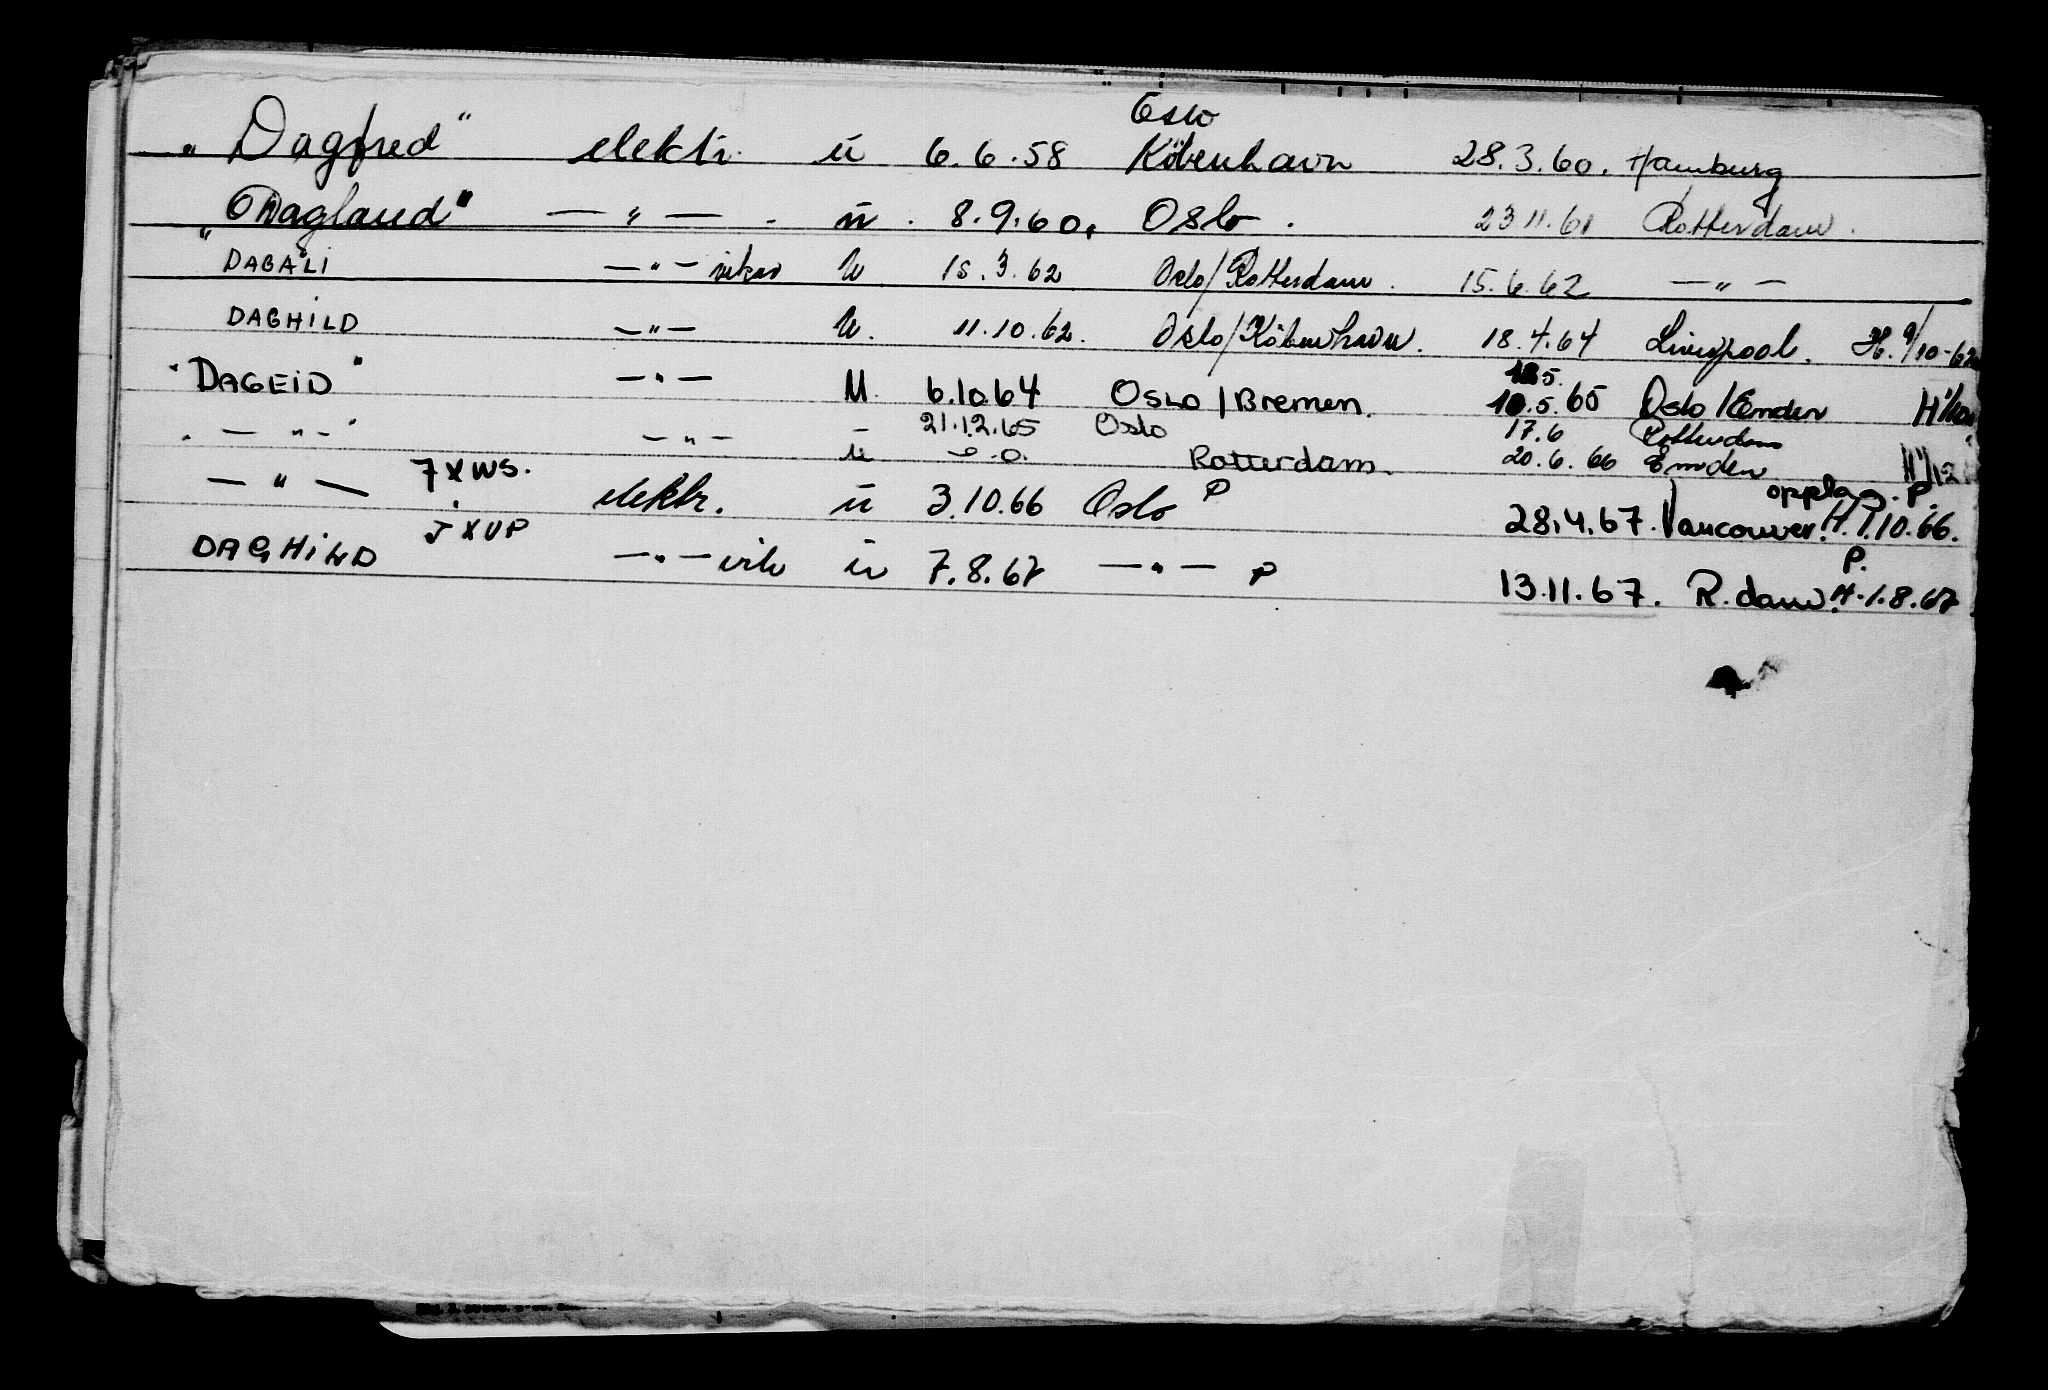 Oslo
"Dagfred" elektr. ü 6.6.58 Köbenhavn 28.3.60. Hamburg
"Dagland" — " — . ü . 8.9.60. Oslo . 23.11.61 Rotterdam .
DAGALI — " — vikar U 15.3.62 Oslo/Rotterdam . 15.6.62 — " —
DAGHILD — " — U. 11.10.62. Oslo/Köbenhavn. 18.4.64 Liverpool. H. 9/10-62
"DAGEID" — " — U. 6.10.64 Oslo/Bremen. 10.5.65 Oslo/Emden
" — " — " — " — – 21.12.65 Oslo 17.6 Rotterdam
Rotterdam. 20.6.66 Emden
— " — 7XWS. elektr. ü 3.10.66 Oslo P 28.4.67. Vancouver. opplag. P. H. 1.10.66.
DAGHILD JXUP — " — vik ü 7.8.67 — " — P 13.11.67. R.dam. P. H. 1.8.67